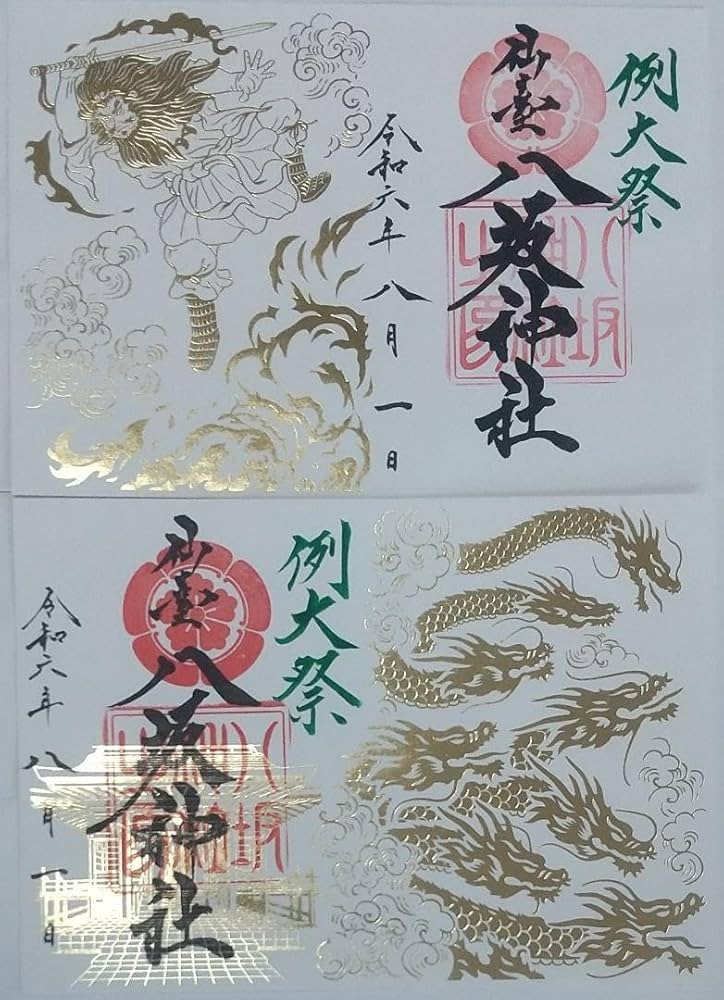 例大祭
仙臺
八坂神社
令和六年八月一日
例大祭
仙臺
八坂神社
令和六年八月一日